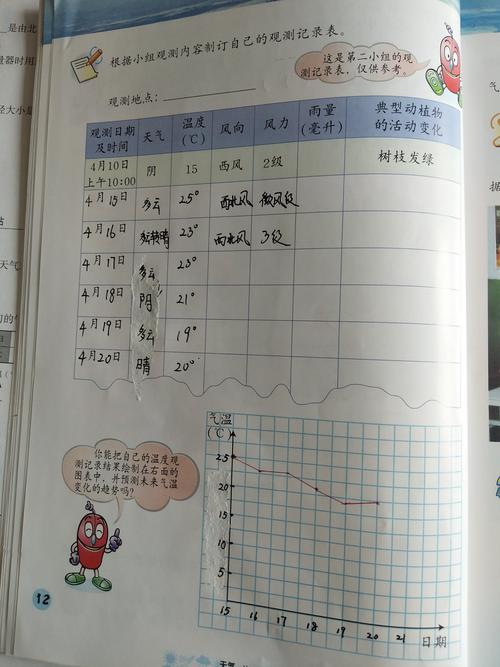 是由北
根据小组观测内容制订自己的观测记录表。
这是第二小组的观
测记录表，仅供参考。
观测地点：
观测日期及时间 天气 温度(℃) 风向 风力 雨量(毫升) 典型动植物的活动变化
4月10日上午10:00 阴 15 西风 2级 树枝发绿
4月15日 多云 25° 西北风 微风级
4月16日 多云转晴 23° 西北风 3级
4月17日 多云 23°
4月18日 阴 21°
4月19日 多云 19°
4月20日 晴 20°
你能把自己的温度观
测记录结果绘制在右面的
图表中，并预测未来气温
变化的趋势吗？
气温
(℃)
25
20
15
10
5
15 16 17 18 19 20 21 日期
12
天气